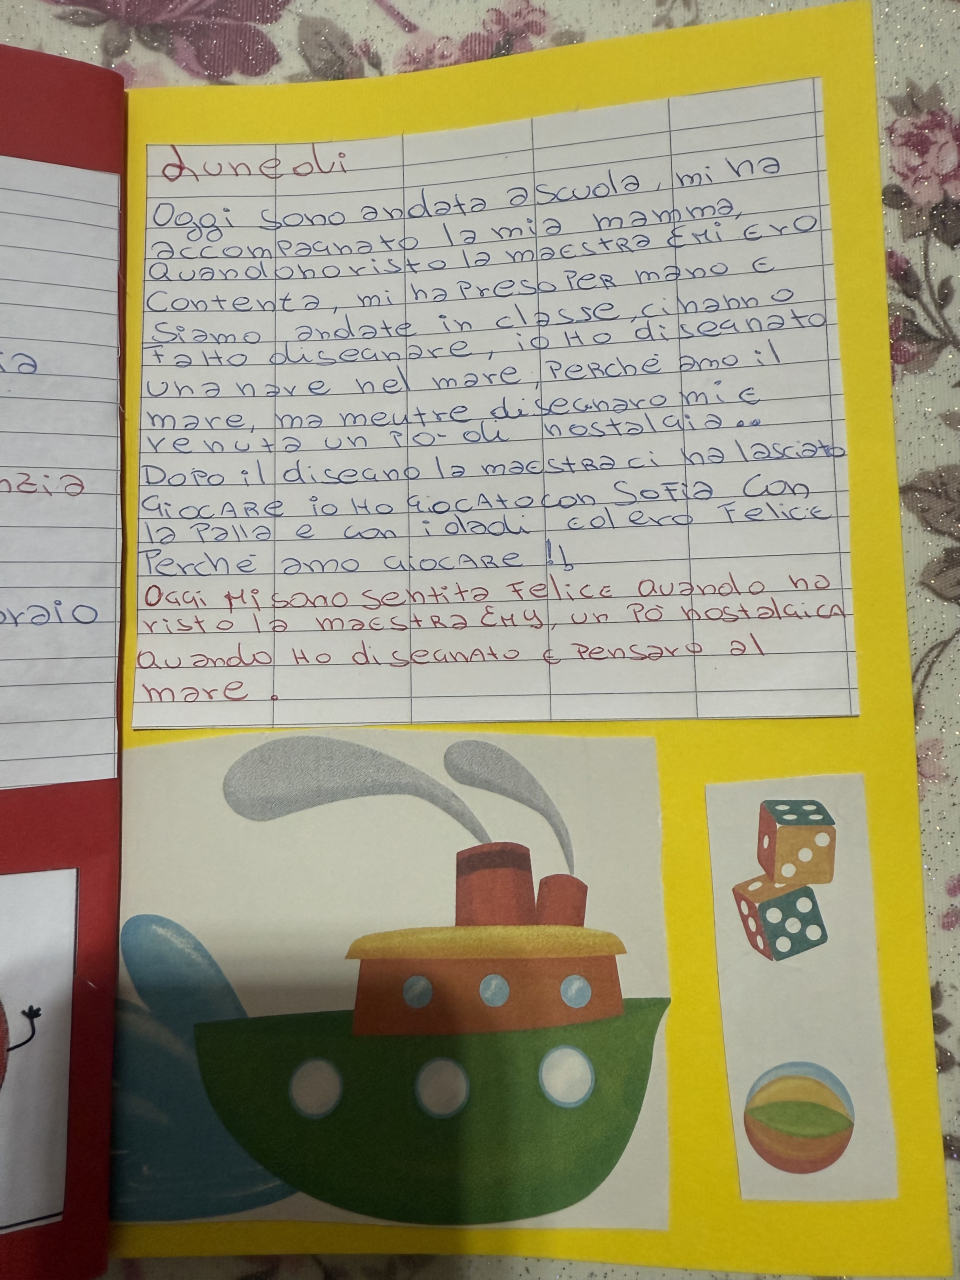 Lunedi
Oggi sono andata a scuola, mi ha
accompagnato la mia mamma,
Quando ho visto la maestra Emi ero
contenta, mi ha preso per mano e
siamo andate in classe, ci hanno
fatto disegnare, io ho disegnato
una nave nel mare, perchè amo il
mare, ma mentre disegnavo mi e
venuta un po- di nostalgia..
Dopo il disegno la maestra ci ha lasciato
giocare io ho giocato con Sofia con
la palla e con i dadi ed ero felice
Perchè amo giocare !!
Oggi mi sono sentita felice quando ho
visto la maestra Emy, un pò nostalgica
quando ho disegnato e pensavo al
mare.
ia
nzia
oraio